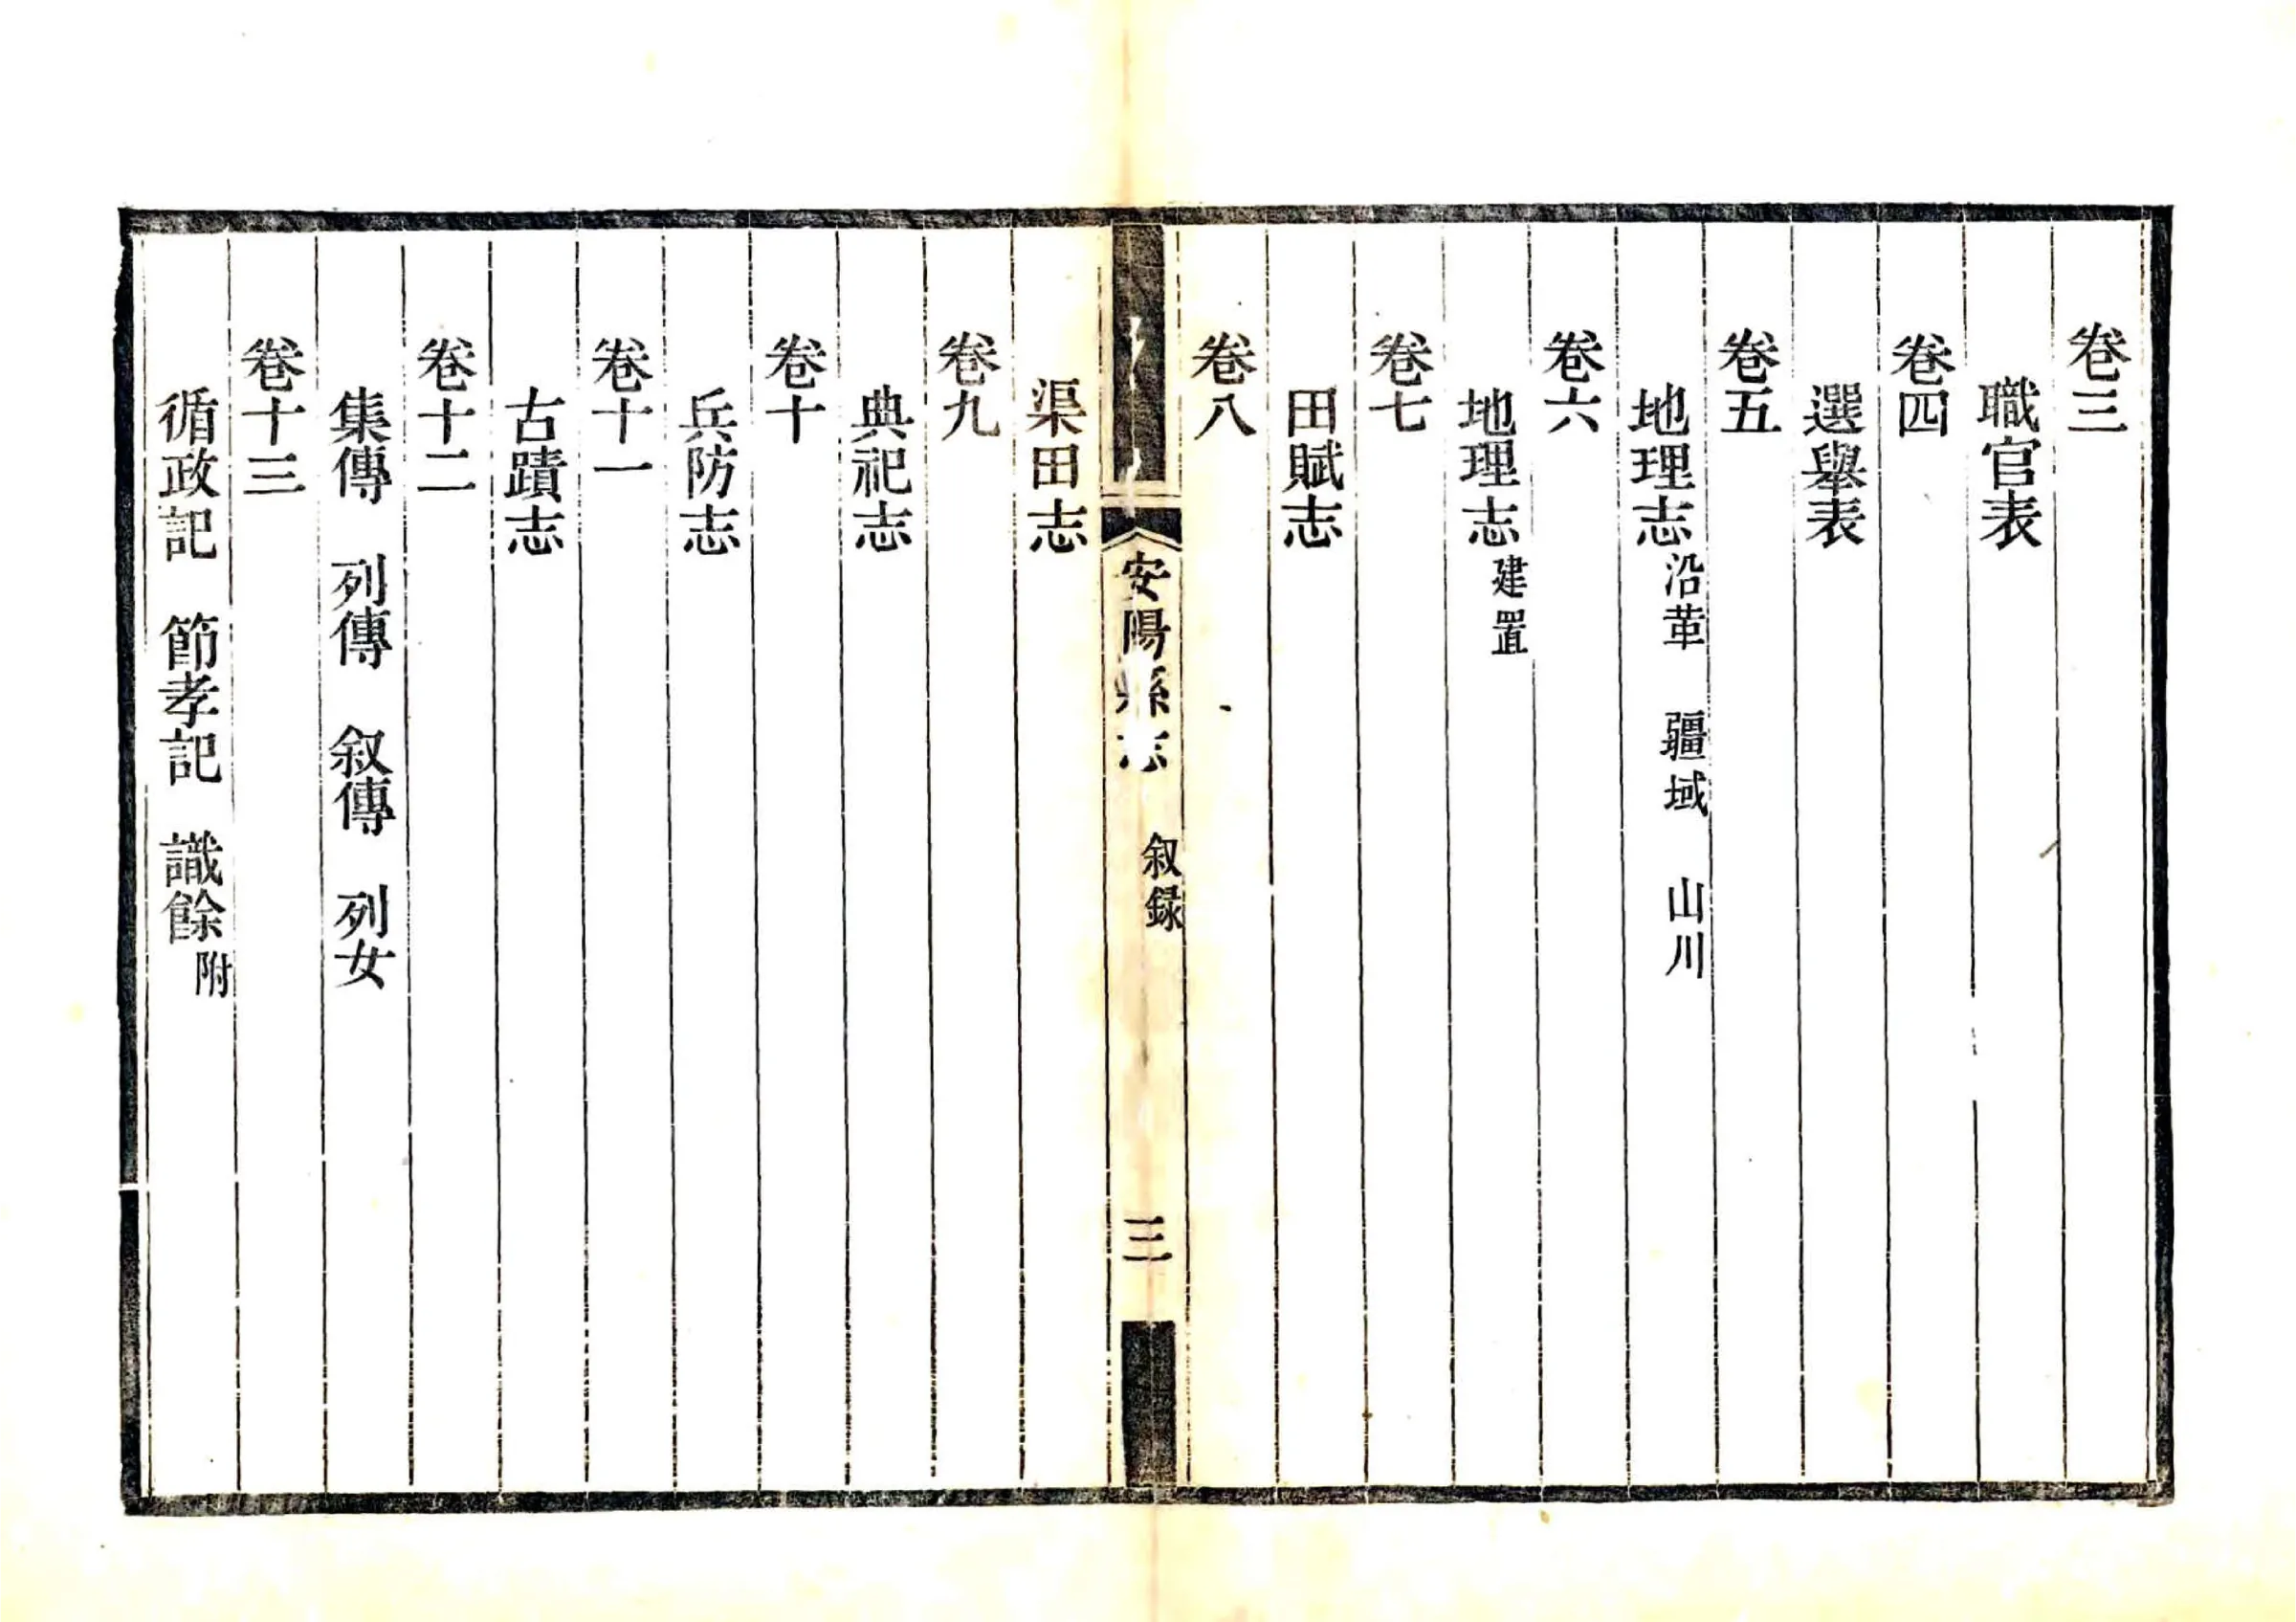 卷三
職官表
卷四
選舉表
卷五
地理志 沿革 疆域 山川
卷六
地理志 建置
卷七
田賦志
卷八
安陽縣志 叙録 三
渠田志
卷九
典祀志
卷十
兵防志
卷十一
古蹟志
卷十二
集傳 列傳 叙傳 列女
卷十三
循政記 節孝記 識餘附